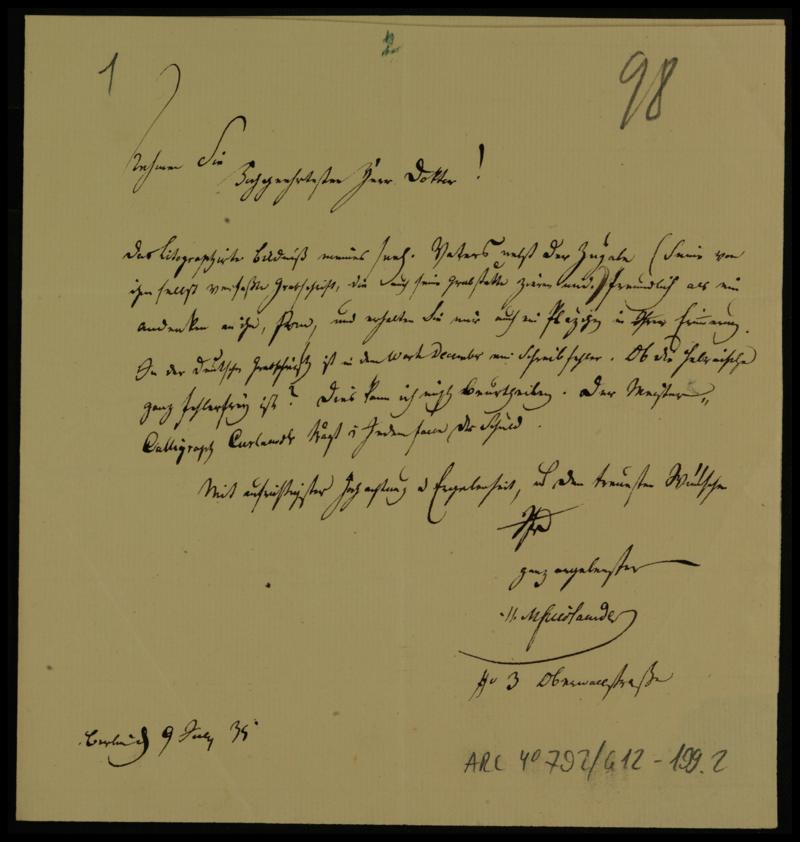 1
2
98
Nehmen Sie
Hochgeehrtester Herr Doktor!
Das litographirte Bildniß meines sel. Vaters nebst der Zugabe (seine von
ihm selbst verfaßte Grabschrift, die auch seine Grabstätte zieren wird) freundlich als ein
Andenken an ihn, und erhalten Sie mir auch ein Pläzchen in Ihrer Erinnerung.
In der Deutschen Grabschrift ist in dem Wort December ein Schreibfehler. Ob die Hebräische
ganz fehlerfrey ist? Dies kann ich nicht beurtheilen. Der Meister„
Calligraph trägt in jedem Falle die Schuld.
Mit aufrichtigster Hochachtung u Ergebenheit, und den treuesten Wünschen
Ihr
ganz ergebenster
No 3 Oberwallstraße
Berlin d 9 July 35
ARC 4º 792/G12-199.2